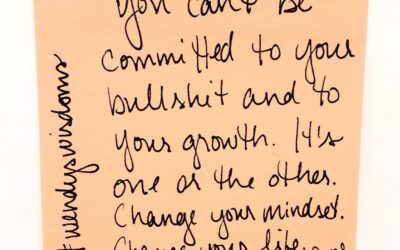 You can't be
committed to your
bullshit and to
your growth. It's
one or the other.
Change your mindset.
Change your life.
#wendyswisdoms